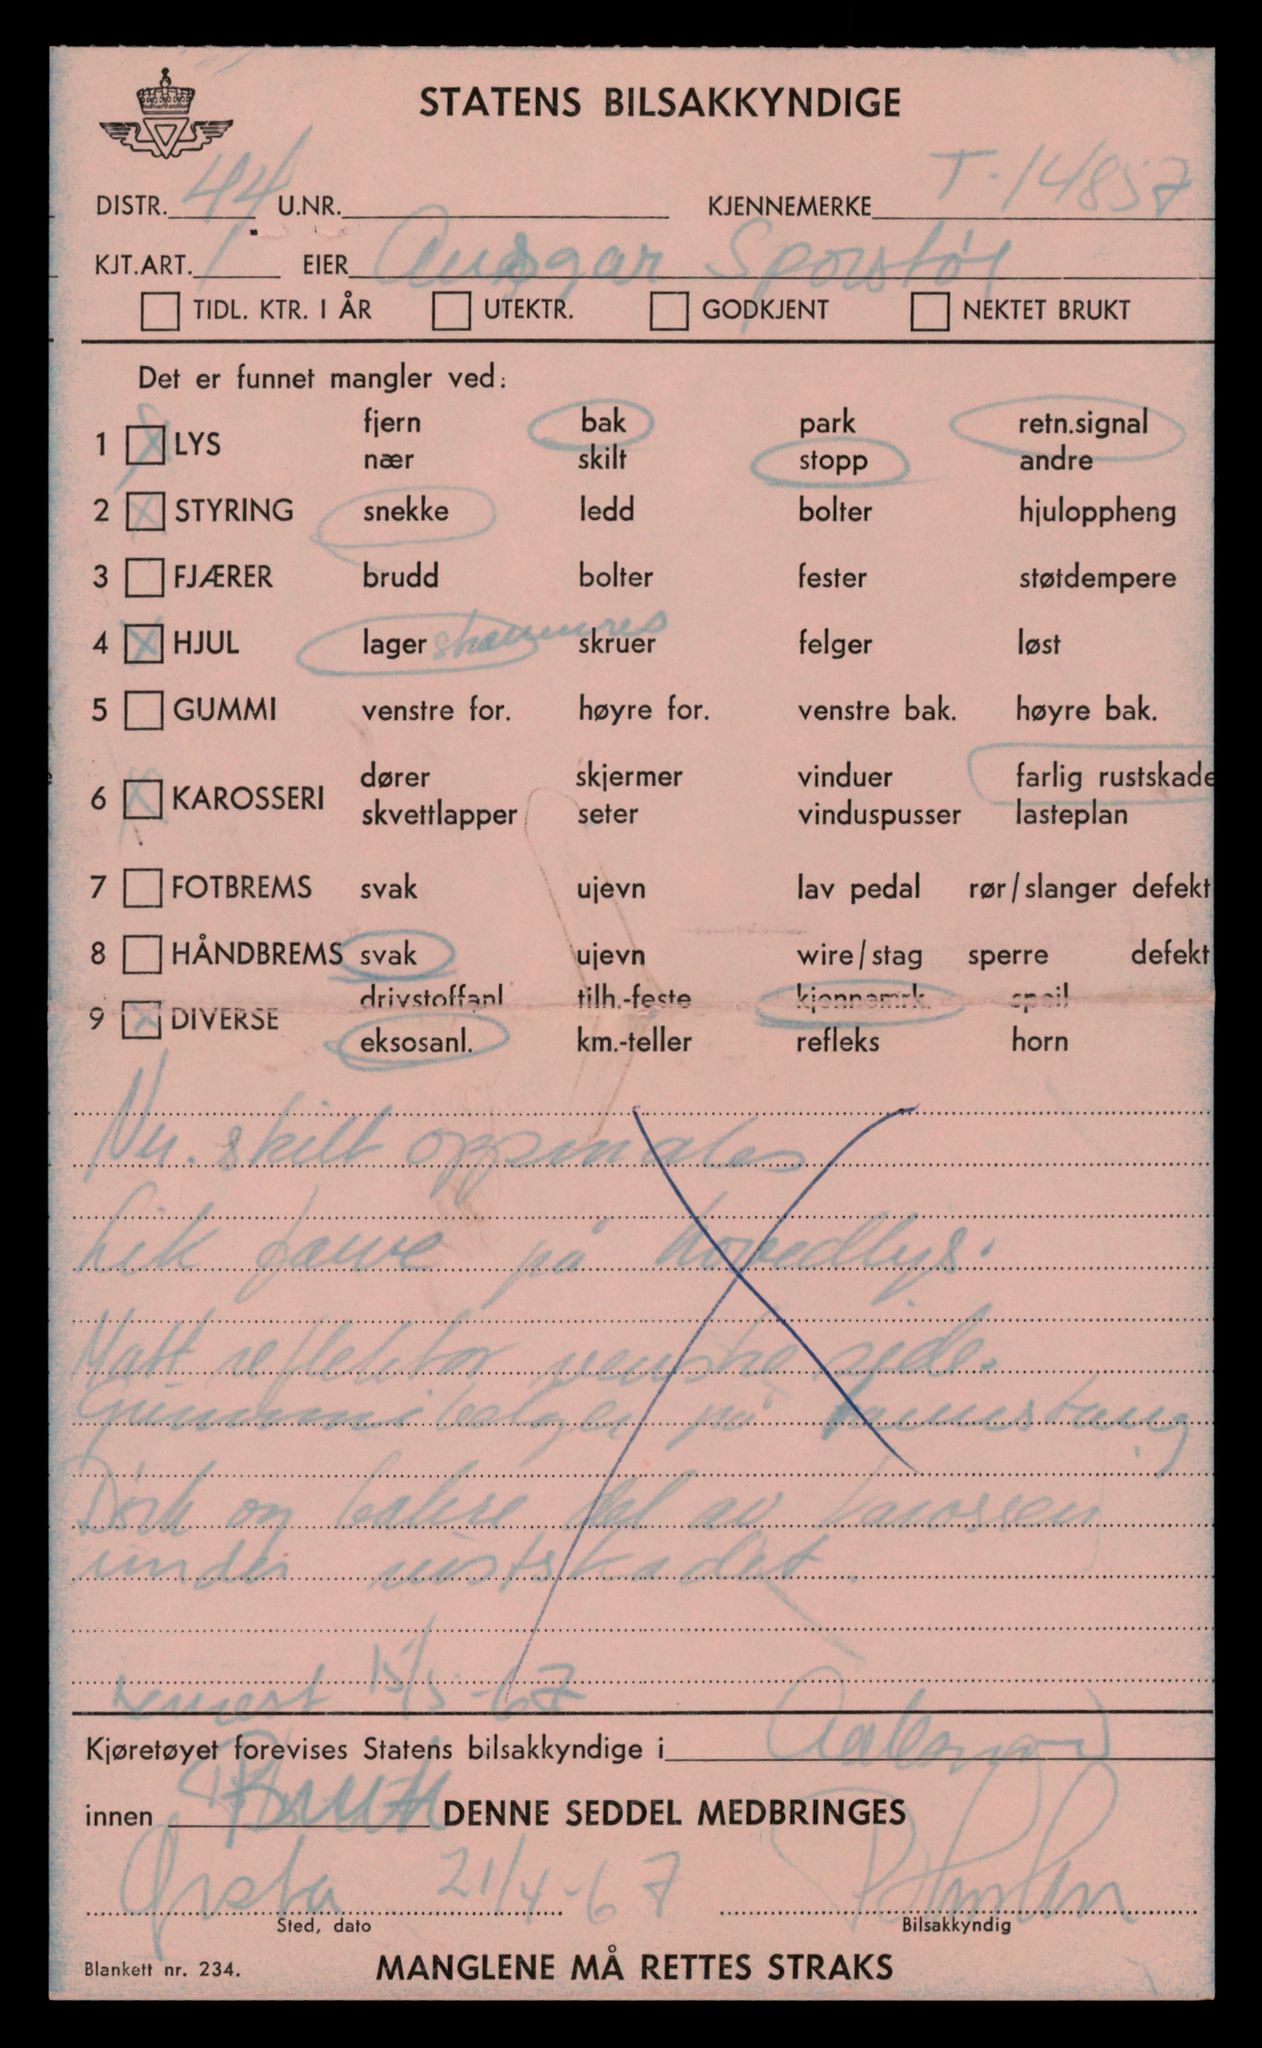 STATENS BILSAKKYNDIGE
DISTR. 44 U.NR. KJENNEMERKE T-14857
KJT.ART. 1 EIER Ansgar Sporstøl
TIDL. KTR. I ÅR UTEKTR. GODKJENT NEKTET BRUKT
Det er funnet mangler ved:
fjern bak park retn.signal
1 X LYS
nær skilt stopp andre
2 X STYRING snekke ledd bolter hjuloppheng
3 FJÆRER brudd bolter fester støtdempere
4 X HJUL lager strammes skruer felger løst
5 GUMMI venstre for. høyre for. venstre bak. høyre bak.
dører skjermer vinduer farlig rustskade
6 X KAROSSERI
skvettlapper seter vinduspusser lasteplan
7 FOTBREMS svak ujevn lav pedal rør/slanger defekt
8 HÅNDBREMS svak ujevn wire/stag sperre defekt
drivstoffanl tilh.-feste kjennemrk. speil
9 X DIVERSE
eksosanl. km.-teller refleks horn
Nr. skilt oppmales
Lik farve på hovedlys.
Matt reflektor venstre side.
Gummibelger på
Dørk og bakre del av karossen
under rustskadet.
15/5-67
Kjøretøyet forevises Statens bilsakkyndige i
innen DENNE SEDDEL MEDBRINGES
Ørsta 21/4-67
Sted, dato Bilsakkyndig
Blankett nr. 234. MANGLENE MÅ RETTES STRAKS